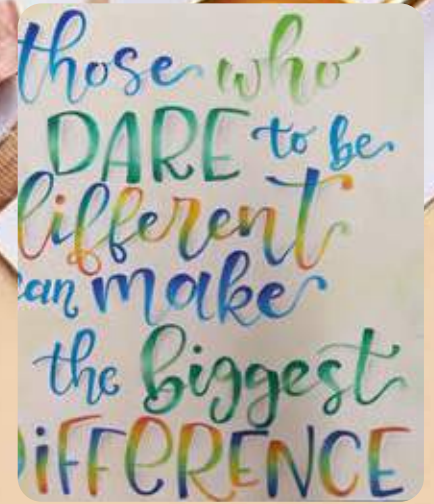 those who
DARE to be
different
can make
the biggest
DiFFERENCE